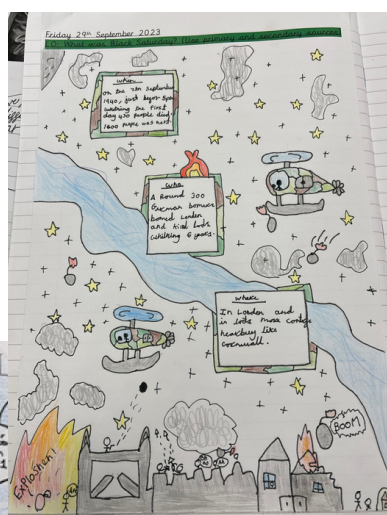 Friday 29th September 2023
LO: What was Black Saturday? (Use primary and secondary sources)
when
on the 7th September
1940, just before 5pm
withing the first
day 430 people died
1600 people was hurt.
who
A Round 300
German bomers
bomed London
and kiled lots
whithing 6 years.
where
In London and
in lots more
heatbury like
cornwall.
Explosion!
BOOM